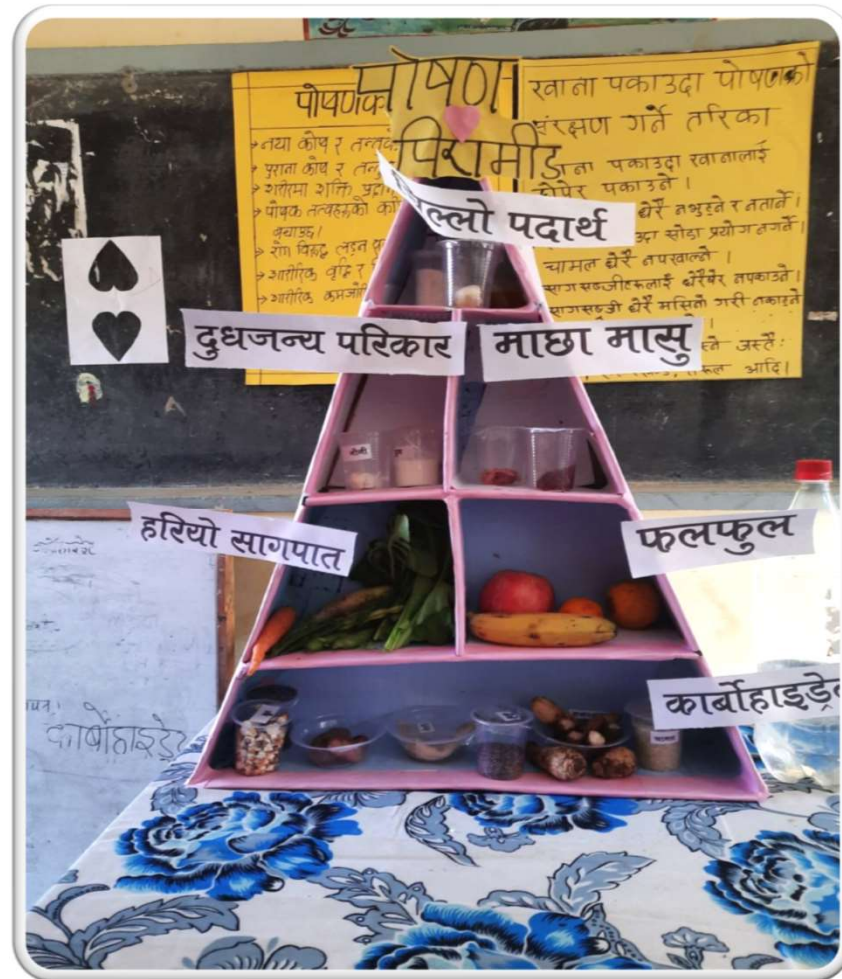 पोषण
पिरामीड
पोषणक
→ नया कोष र
→ पुराना कोष र
→ शरीरमा शक्ति
→ पोषक तत्वहरूको
→ रोग विरुद्ध लड्न
→ शारीरिक वृद्धि र
→ शारीरिक कमजोरी
खाना पकाउदा पोषणको
संरक्षण गर्ने तरिका
पकाउदा खानालाई
छोपेर पकाउने ।
धेरै नभुट्ने र नतार्ने ।
सोडा प्रयोग नगर्ने ।
चामल धेरै नपखाल्ने ।
सागसब्जीहरूलाई धेरैबेर नपकाउने ।
सागसब्जी धेरै मसिनो गरी नकाट्ने
जस्तै:
आदि।
चिल्लो पदार्थ
दुधजन्य परिकार
माछा मासु
हरियो सागपात
फलफुल
कार्बोहाइड्रे
कार्बोहाइड्रे